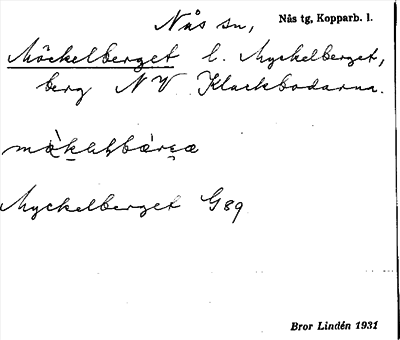 Nås sn,
Nås tg, Kopparb. l.
Möckelberget l. Myckelberget,
berg NV Klackbodarna.
Myckelberget G89
Bror Lindén 1931